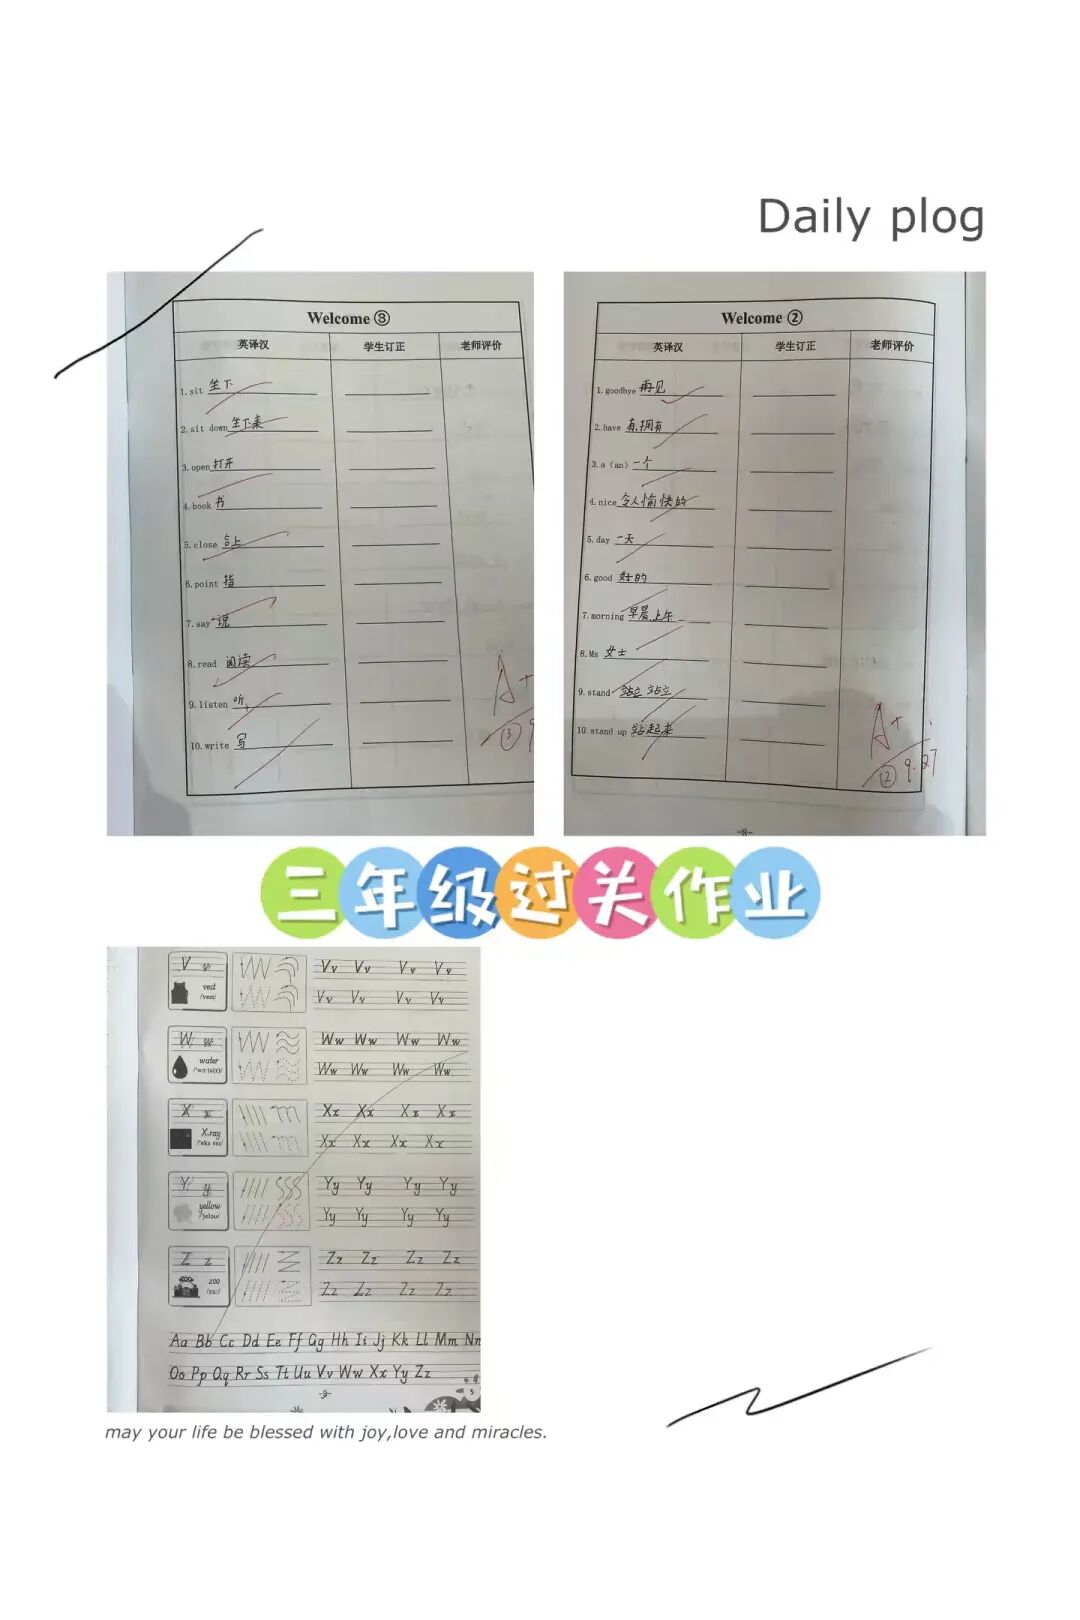 Daily plog
Welcome ③
英译汉 学生订正 老师评价
1.sit 坐下
2.sit down 坐下来
3.open 打开
4.book 书
5.close 合上
6.point 指
7.say 说
8.read 阅读
9.listen 听
10.write 写
A+
③
Welcome ②
英译汉 学生订正 老师评价
1.goodbye 再见
2.have 有,拥有
3.a (an) 一个
4.nice 令人愉快的
5.day 一天
6.good 好的
7.morning 早晨,上午
8.Ms 女士
9.stand 站立
10.stand up 站起来
A+
⑫ 9.27
-8-
三年级过关作业
V v
vest
/vest/
Vv Vv Vv Vv
Vv Vv Vv Vv
W w
water
Ww Ww Ww Ww
Ww Ww Ww Ww
X x
X-ray
Xx Xx Xx Xx
Xx Xx Xx Xx
Y y
yellow
Yy Yy Yy Yy
Yy Yy Yy Yy
Z z
ZOO
zoo
/zuː/
Zz Zz Zz Zz
Zz Zz Zz Zz
Aa Bb Cc Dd Ee Ff Gg Hh Ii Jj Kk Ll Mm Nn
Oo Pp Qq Rr Ss Tt Uu Vv Ww Xx Yy Zz
-9-
5
may your life be blessed with joy,love and miracles.